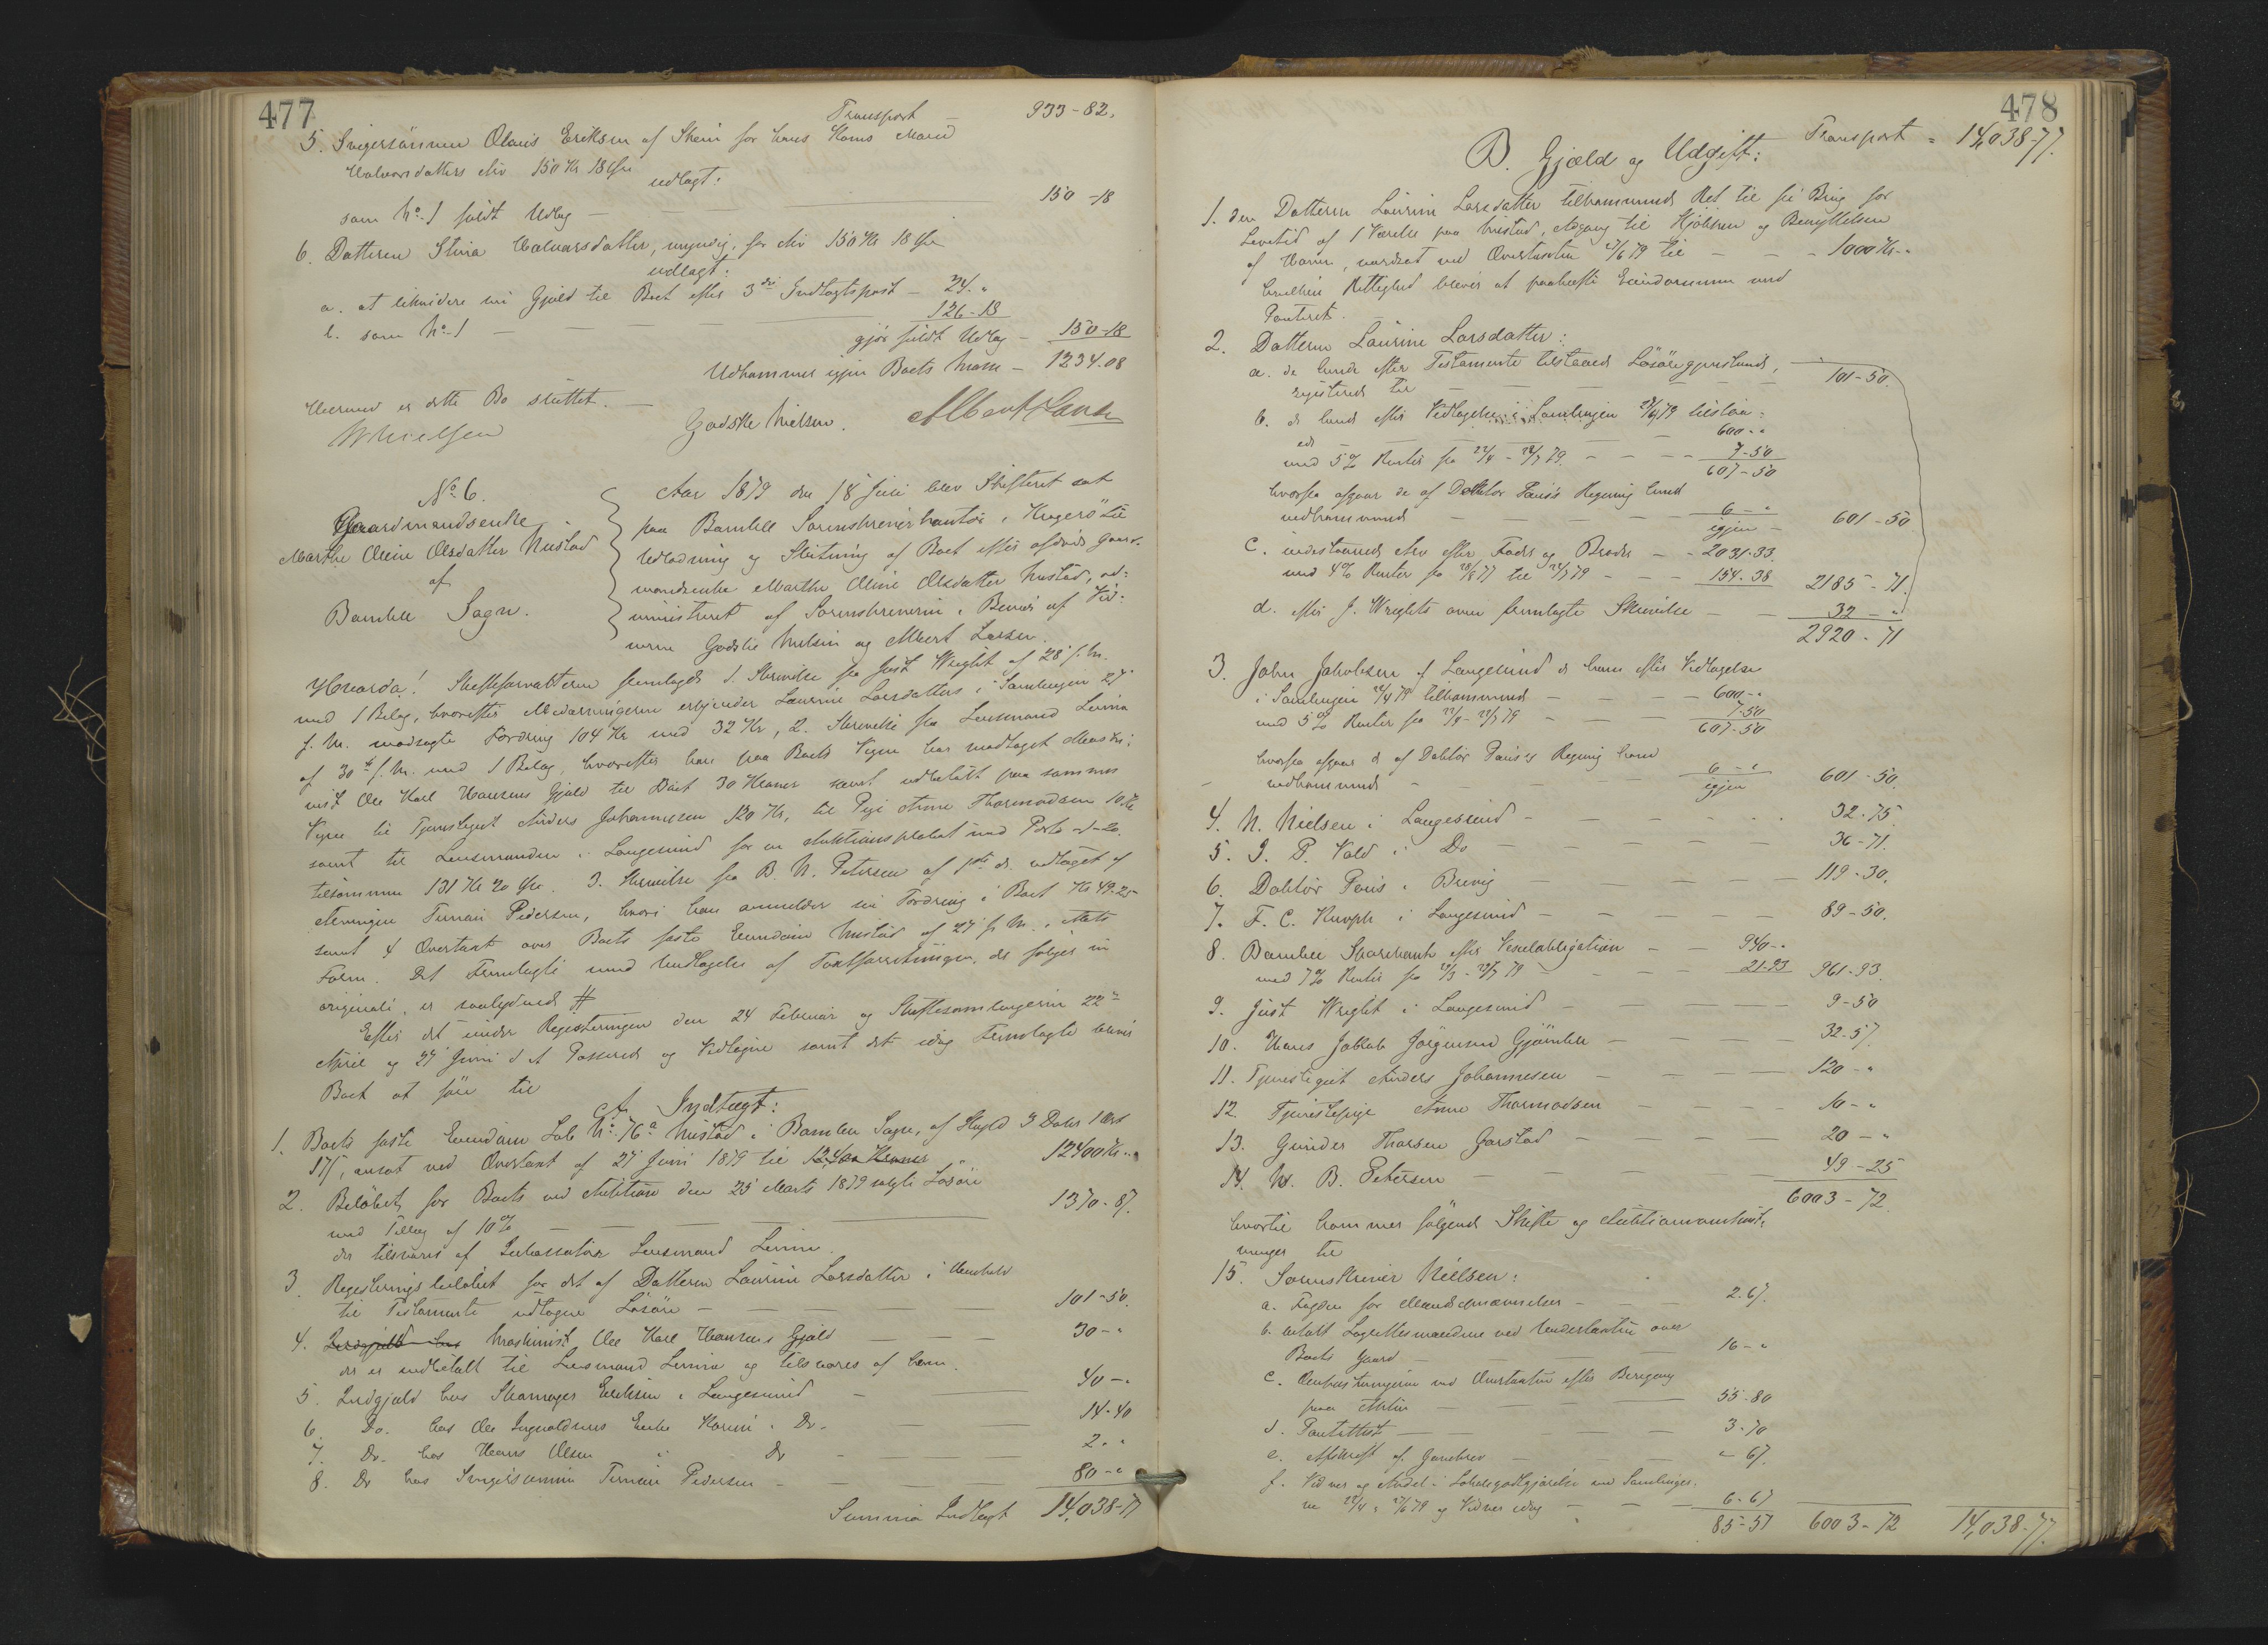 477
Transport - 933-82.
5. Svigersönnen Olaus Eriksen af Skien for hans Kone Maren
Halvorsdatters Arv 150 Kr 18 Øre
udlagt:
som No 1 fuldt Udlæg - 150-18
6. Datteren Stina Halvorsdatter, umyndig, for Arv 150 Kr 18 Øre
udlagt:
a. at likvidere sin Gjæld til Boet efter 3die Indtægtspost - 24. "
b. som No 1 - 126-18
gjör fuldt Udlæg - 150-18
Udkommer igjen Boets Masse - 1234.08
Hermed er dette Bo sluttet.
Nielsen Godske Nielsen. Albert Larsen
No 6.
Gaardmandsenke
Marthe Oline Olsdatter Nustad
af
Bamble Sogn.
Aar 1879 den 18 Juli blev Skifteret sat
paa Bamble Sorenskriverkontor i Kragerö til
Udlodning og Slutning af Boet efter afdöde Gaard-
mandsenke Marthe Oline Olsdatter Nustad, ad-
ministreret af Sorenskriveren i Beværs af Vid-
nerne Godske Nielsen og Albert Larsen.
Hvorda! Skifteforvalteren fremlagde 1. Skrivelse fra Just Wright af 28 f. M.
med 1 Bilag, hvorefter Medarvingerne erkjender Laurine Larsdatters i Samlingen 27
f. M. modsagte Fordring 104 Kr med 32 Kr, 2. Skrivelse fra Lensmand Linna
af 30te f. M. med 1 Bilag, hvorefter han paa Boets Vegne har modtaget Maski-
nist Ole Karl Hansens Gjæld til Boet 30 Kroner samt udbetalt paa sammes
Vegne til Tjenestegut Anders Johannesen 120 Kr, til Pige Anne Thormodsen 10 Kr
samt til Lensmanden i Langesund for en Auktionsplakat med Porto 1-20.
tilsammen 131 Kr 20 Øre. 3. Skrivelse fra B. N. Petersen af 1ste ds. udtaget af
Arvingen Tinnan Pedersen, hvori han anmelder sin Fordring i Boet Kr 49.25
samt 4 Overtaxt over Boets faste Eiendom Nustad af 27 f. M. i Akts
Form. Det Fremlagte med Undtagelse af Taxtforretningen, der følger in
originali, er saalydende #
Efter det under Registreringen den 24 Februar og Skiftesamlingerne 22de
April og 27 Juni d A Passerede og Vedtagne samt det idag Fremlagte bliver
Boet at före til
A. Indtægt:
1. Boets faste Eiendom Löb No 76a Nustad i Bamble Sogn, af Skyld 3 Daler 1 Ort
17 ß, ansat ved Overtaxt af 27 Juni 1879 til 12,400 Kroner 12400 Kr. "
2. Belöbet for Boets ved Auktion den 25 Marts 1879 solgte Lösöre
med Tillæg af 10% - 1370-87.
der tilsvares af Inkassator Lensmand Linna.
3. Registreringsbelöbet for det af Datteren Laurine Larsdatter i Henhold
til Testamente udtagne Lösöre - 101-50.
4. Indgjæld hos Maskinist Ole Karl Hansens Gjæld - 30- "
der er indbetalt til Lensmand Linna og tilsvares af ham.
5. Indgjæld hos Skomager Erichsen i Langesund - 40- "
6. Do. hos Ole Ingvaldsens Enke Karen i Do - 14-40
7. Do hos Hans Olsen i Do - 2. "
8. Do hos Svigersönnen Tinnan Pedersen - 80- "
Summa Indtægt 14,038-77
478
Transport = 14,038-77.
B. Gjæld og Udgift:
1. den Datteren Laurine Larsdatter tilkommende Ret til fri Brug for
Levetid af 1 Værelse paa Nustad, Adgang til Kjökken og Benyttelsen
af Haven, værdsat ved Overtaxten 27/6 79 til - - - 1000 Kr. "
hvilken Rettighed bliver at paahefte Eiendommen med
Panteret.
2. Datteren Laurine Larsdatter:
a. de hende efter Testamente tilstaaede Lösöregjenstande,
registrerede til - 101-50.
b. de hende efter Vedtagelse i Samlingen 22/4 79 tilstaa-
ede - 600- "
med 5% Renter fra 22/4 - 22/7 79. - 7-50
607-50
hvorfra afgaar de af Doktor Pauss Regning hende
vedkommende - 6- "
igjen - 601-50
c. indestaaende Arv efter Fader og Broder - 2031.33.
med 4% Renter fra 28/8 77 til 22/7 79 - 154-38 2185-71.
d. efter J. Wrights oven fremlagte Skrivelse - 32- "
2920-71
3. John Jakobsen af Langesund de ham efter Vedtagelse
i Samlingen 22/4 79 tilkommende - 600- "
med 5% Renter fra 22/4 - 22/7 79 - 7-50
607-50
hvorfra afgaar de af Doktor Pauss's Regning ham
vedkommende - 6- "
igjen 601-50.
4. N. Nielsen i Langesund - 32-75.
5. J. P. Vold i Do - 36-71.
6. Doktor Pauss i Brevig - 119-30.
7. F. C. Knoph i Langesund - 89-50.
8. Bamble Sparebank efter Vexelobligation - 940- "
med 7% Renter fra 22/3 - 22/7 79 - 21-93 961-93.
9. Just Wright i Langesund - 9-50
10. Hans Jakob Jörgensen Gjömle - 32-57.
11. Tjenestegut Anders Johannesen - 120- "
12. Tjenestepige Anne Thormodsen - 10- "
13. Gunder Thorsen Garstad - 20- "
14. N. B. Petersen - 49-25
6003-72
hvortil kommer fölgende Skifte og Auktionsomkost-
ninger til
15. Sorenskriver Nielsen:
a. Fogden for Mandsopnævnelser - 2.67.
b. betalt Lagrettesmændene ved Undertaxten over
Boets Gaard - 16- "
c. Omkostningerne ved Overtaxten efter Beregning
paa Akten - 55-80
d. Panteattest - 3-70
e. Afskrift af Gavebrev - "-67.
f. Vidner og Andel i Lokalegodtgjørelse ved Samlinger-
ne 22/4, 27/6 79 og Vidner idag - 6-67
85-51 6003-72 14,038-77.